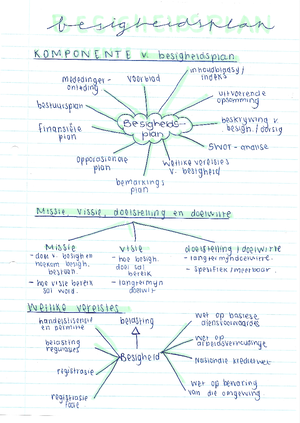 besigheidsplan
KOMPONENTE v. besigheidsplan
mededinger-
ontleding
voorblad
inhoudsopgawe/
indeks
uitvoerende
opsomming
bestuursplan
Besigheids-
plan
beskrywing v.
besigh./oorsig
finansiële
plan
SWOT-analise
operasionele
plan
Wetlike vereistes
v. besigheid
bemarkings
plan
Missie, visie, doelstelling en doelwitte
Missie
- doel v. besigheid
hoekom besigh.
bestaan.
- hoe visie bereik
sal word.
visie
- hoe besigh.
doel sal
bereik
- langtermyn
doelwit
doelstelling/doelwitte
- langtermyndoelwitte.
- spesifiek/meetbaar.
Wetlike vereistes
handelslisensie
en permitte
belasting
wet op basiese
diensvoorwaardes
belasting
regulasies
wet op
arbeidsverhoudinge
Besigheid
registrasie
Nasionale kredietwet
registrasie
wet op bewaring
van die omgewing